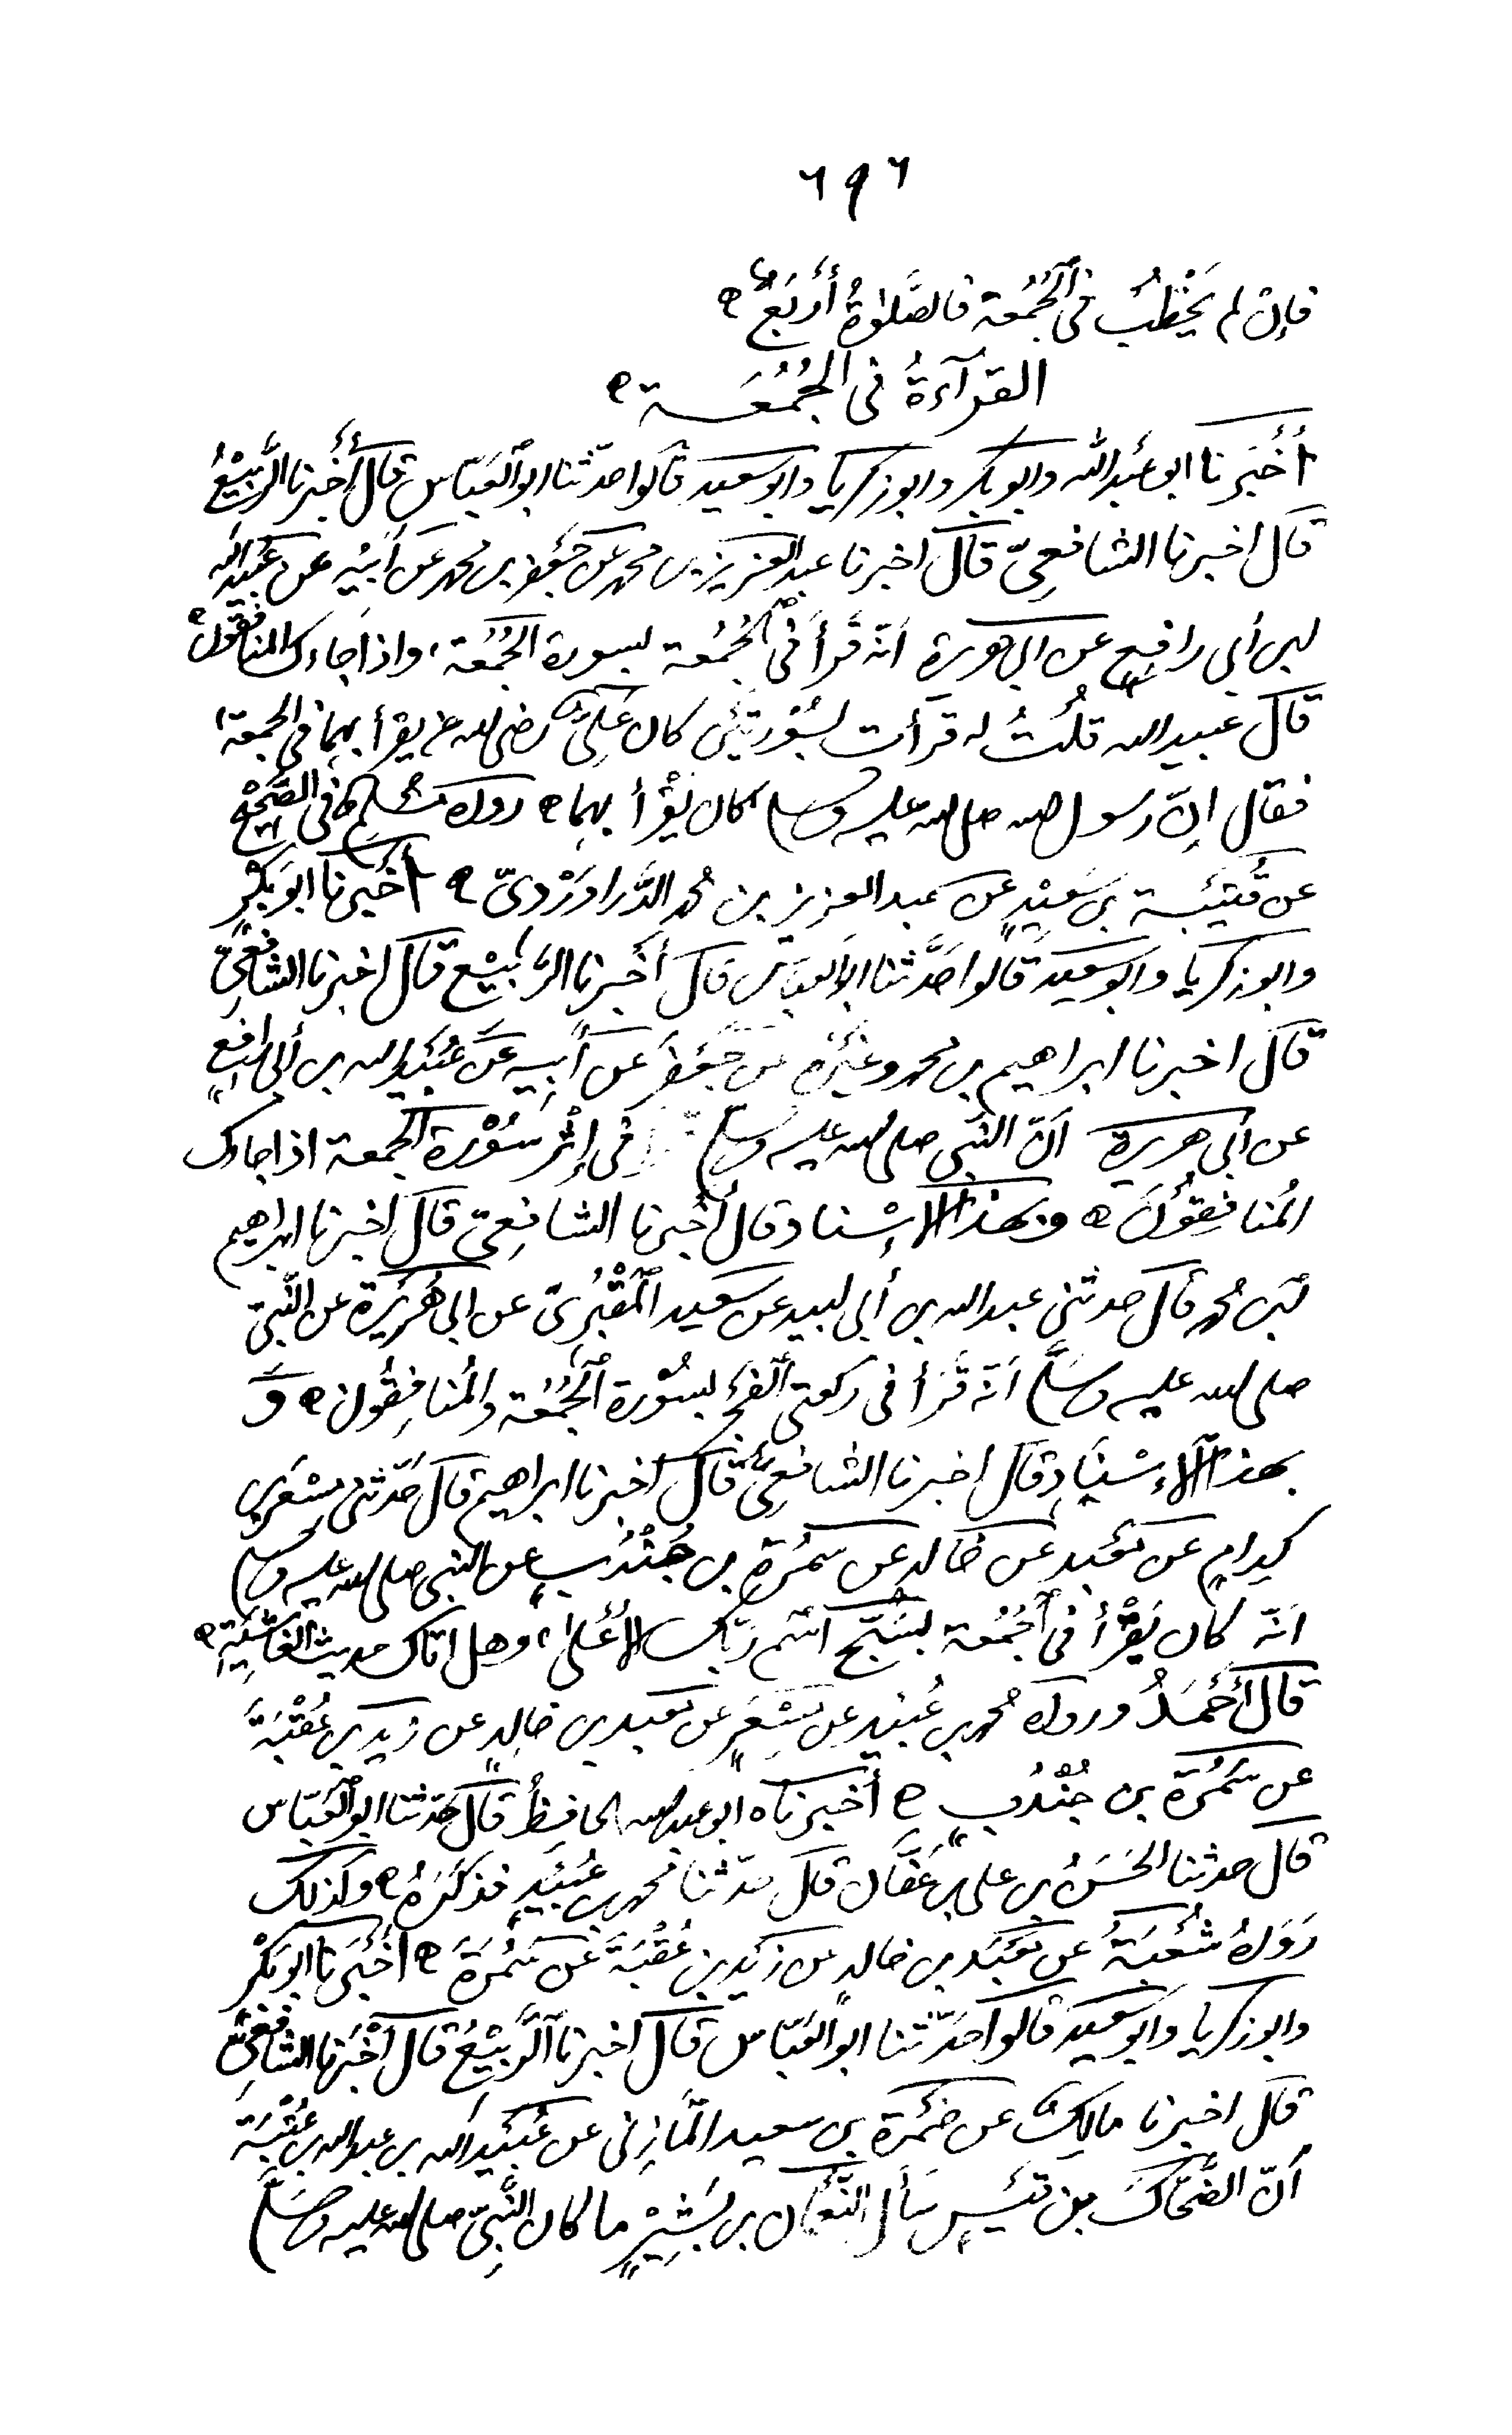 ٦٩٦
فإن لم يَخْطُبْ فى الجُمُعة فالصَّلوٰةُ أَرْبَعٌ ه
القرآءةُ فى الجُمُعَة ه
أَخْبَرنا ابو عَبد الله وابو بكر وابو زكريا وابو سعيد قالوا حدّثنا ابو العبّاس قال أَخْبرنا الرَّبِيْعُ
قال اخبرنا الشافعِىّ قال اخبرنا عبد العزيز بن محمد عن جَعْفر بن محمد عن أَبيْه عن عُبَيد الله
بن أبى رافِعٍ عن ابى هريرة أنّه قَرَأَ فى الجُمُعة بسورة الجُمُعة، واذا جاءك المنافقون ه
قال عبيد الله قُلْتُ له قرأت بسُوْرتَيْن كان عَلِىٌّ رضى الله عنه يقرأ بهما فى الجمعة،
فقال إنّ رسول الله صلى الله عليه وسلم كان يَقْرأ بهما ه رواه مُسْلم فى الصَّحِيْحِ
عن قُتَيْبَة بن سَعِيْدٍ عن عبد العزيز بن محمد الدَّرَاوَرْدىّ ه أَخْبرنا ابو بَكْرٍ
وابو زكريا وابو سعيد قالوا حدَّثنا ابو العبّاس قال أَخْبرنا الرَّبيْع قال اخبرنا الشافعىّ
قال اخبرنا ابراهيم بن محمد وغيْرُه عن جَعْفر عن أَبيه عن عُبَيد الله بن أبى رافعٍ
عن أبى هريرة أنّ النّبى صلى الله عليه وسلم فى إِثْر سُوْرة الجمعة اذا جاءك
المُنافِقُونَ ه وبهذا الإسْناد قال أَخْبرنا الشافِعىّ قال اخبرنا ابراهيم
بن محمد قال حدثنى عبد الله بن أبى لبيد عن سعيد المَقْبُرِىّ عن ابى هُرَيْرة عن النّبىّ
صلى الله عليه وسَلَّم أنّه قَرَأ فى ركعتى الفَجْر بسُوْرة الجُمُعة والمُنافِقُون ه وَ
بهذا الإسْنادِ قال اخبرنا الشافعِىُّ قال اخبرنا ابراهيم قال حَدّثنى مِسْعَر بن
كِدامٍ عن مَعْبد عن خالد عن سَمُرَة بن جُنْدُبٍ عن النبى صلى الله عليه وسلم
أنّه كان يَقْرأ فى الجُمُعة بسَبّح اسْم ربّك الأَعْلىٰ، وهل اتاك حديث الغاشِيَةِ ه
قال أَحْمَدُ ورواه محمد بن عُبَيد عن مِسْعَرٍ عن مَعْبد بن خالِدٍ عن زيد بن عُقْبَة
عن سَمُرَة بن جُنْدُبٍ ه أخبرناه ابو عبد الله الحافِظُ قال حدّثنا ابو العَبّاس
قال حدثنا الحَسَنُ بن على بن عَفَّان قال حدّثنا محمد بن عُبَيْدٍ فذكَرَهُ ه وكذلك
رَوَاهُ شُعْبَةُ عن مَعْبَد بن خالد عن زَيد بن عُقْبَة عَن سَمُرَةَ ه أَخْبَرنا ابو بَكْر
وابو زكريا وأبو سعيد قالوا حَدَّثنا ابو العَبّاس قال اخبرنا الرَّبِيْعُ قال أَخْبَرنا الشافعىُّ
قال اخبرنا مالِكٌ عن ضَمْرَة بن سعيد المَازِنى عن عُبَيْد الله بن عبد الله بن عُتْبَة
أَنّ الضَّحّاكَ بن قَيْسٍ سَأَل النُّعْمَان بن بَشِيْرٍ ما كان النَّبِىّ صلى الله عليه وسَلَّم